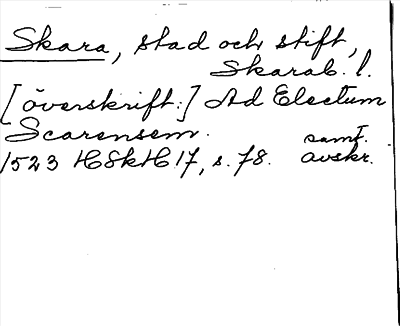 Skara, stad och stift,
Skarab. l.
[överskrift:] Ad Electum
Scarensem.
samt.
1523 HSkH 17, s. 78. avskr.